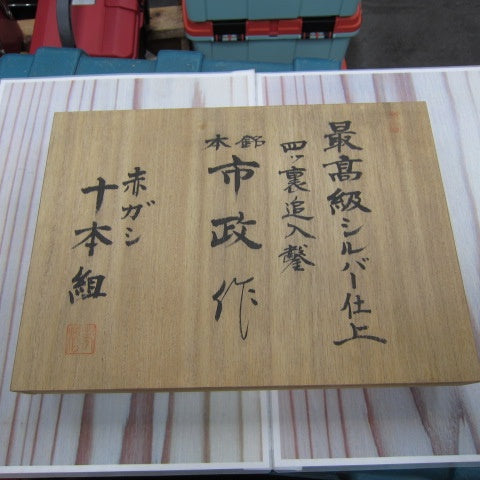 最高級シルバー仕上
四ッ裏追入鑿
本銘
市政作
赤ガシ
十本組